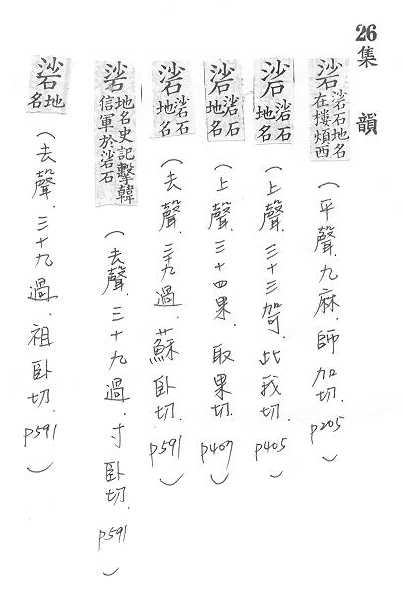 26集韻
硰 硰石地名在樓煩西（平聲.九麻.師加切.p205）
硰 硰石地名（上聲.三十三哿.此我切.p405）
硰 硰石地名（上聲.三十四果.取果切.p407）
硰 硰石地名（去聲.三十九過.蘇卧切.p591）
硰 地名史記擊韓信軍於硰石（去聲.三十九過.寸卧切.p591）
硰 地名（去聲.三十九過.祖卧切.p591）